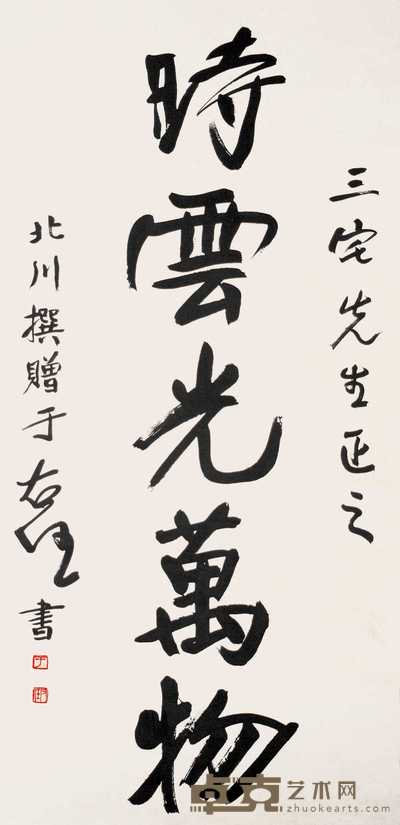 三宅先生正之
時雲光萬物
北川撰贈于右任書
卓克艺术网
zhuokearts.com